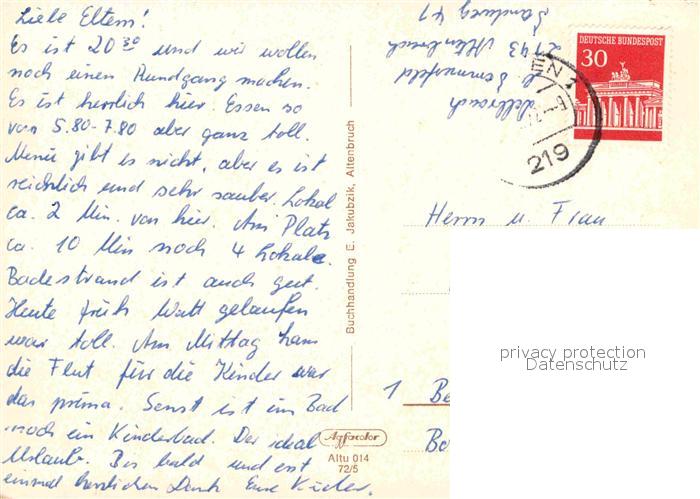 Liebe Eltern!
Es ist 20 30 und wir wollen
noch einen Rundgang machen.
Es ist herrlich hier. Essen so
von 5.80-7.80 aber ganz toll.
Menü gibt es nicht, aber es ist
reichlich und sehr sauber. Lokal
ca. 2 Min. von hier. Am Platz
ca. 10 Min noch 4 Lokale.
Badestrand ist auch gut.
Heute früh Watt gelaufen
war toll. Am Mittag kam
die Flut für die Kinder war
das prima. Sonst ist im Bad
noch ein Kinderbad. Der ideal
Urlaub. Bis bald und erst
einmal herzlichen Dank Eure Kinder.
Buchhandlung E. Jakubzik, Altenbruch
Agfacolor
Altu 014
72/5
Sandweg 41
2143 Altenbruch
DEUTSCHE BUNDESPOST
30
EN 1
219
Herrn u. Frau
1 Be
Bo
privacy protection
Datenschutz